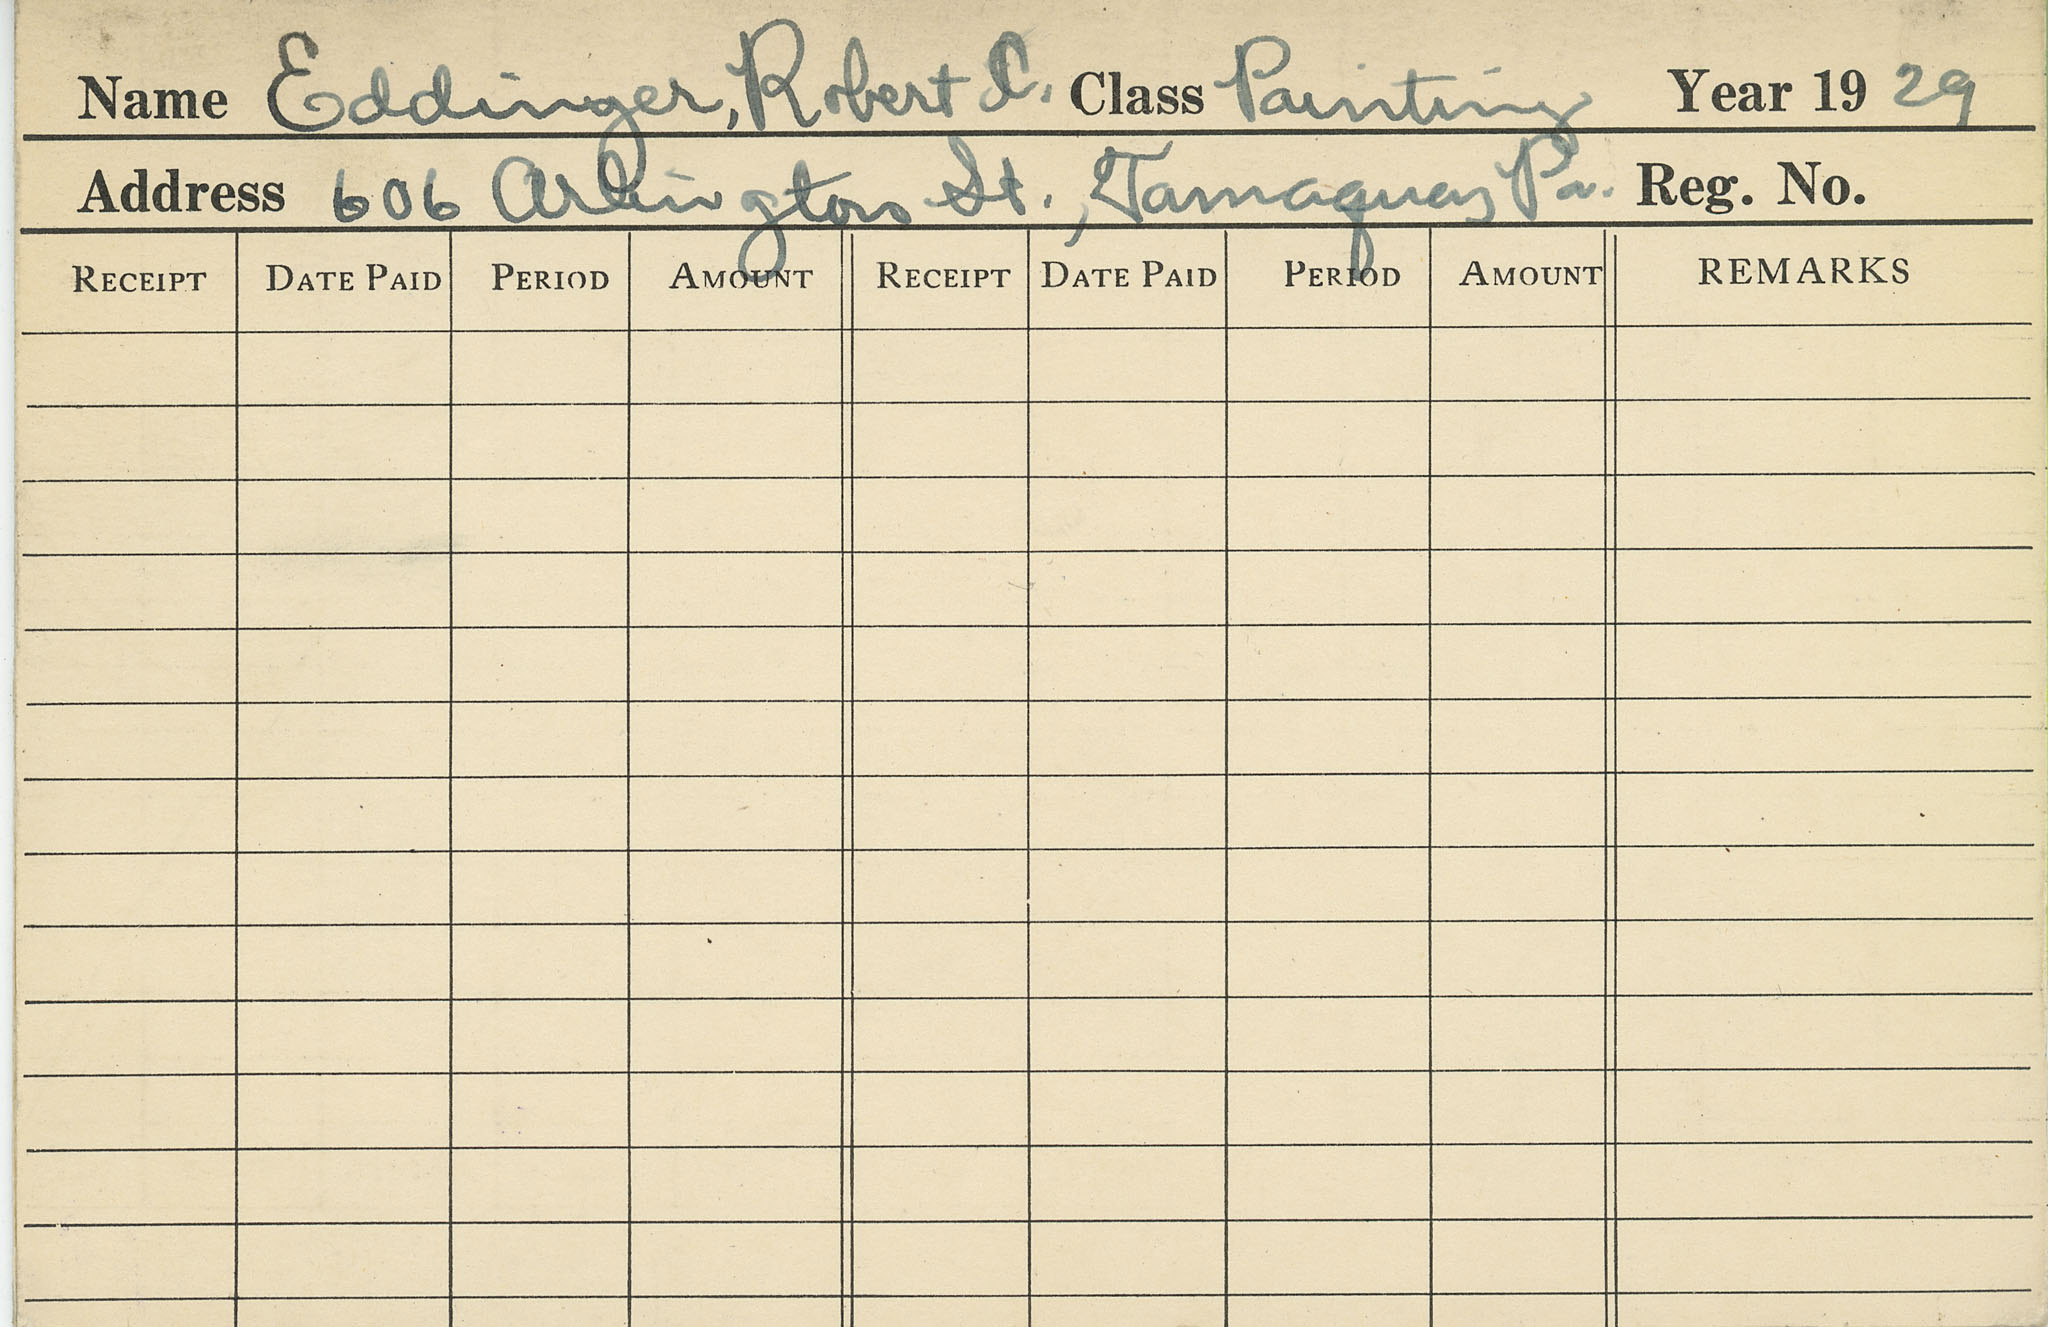 Name Eddinger, Robert D. Class Painting Year 19 29
Address 606 Arlington St., Tamaqua, Pa. Reg. No.
RECEIPT DATE PAID PERIOD AMOUNT RECEIPT DATE PAID PERIOD AMOUNT REMARKS